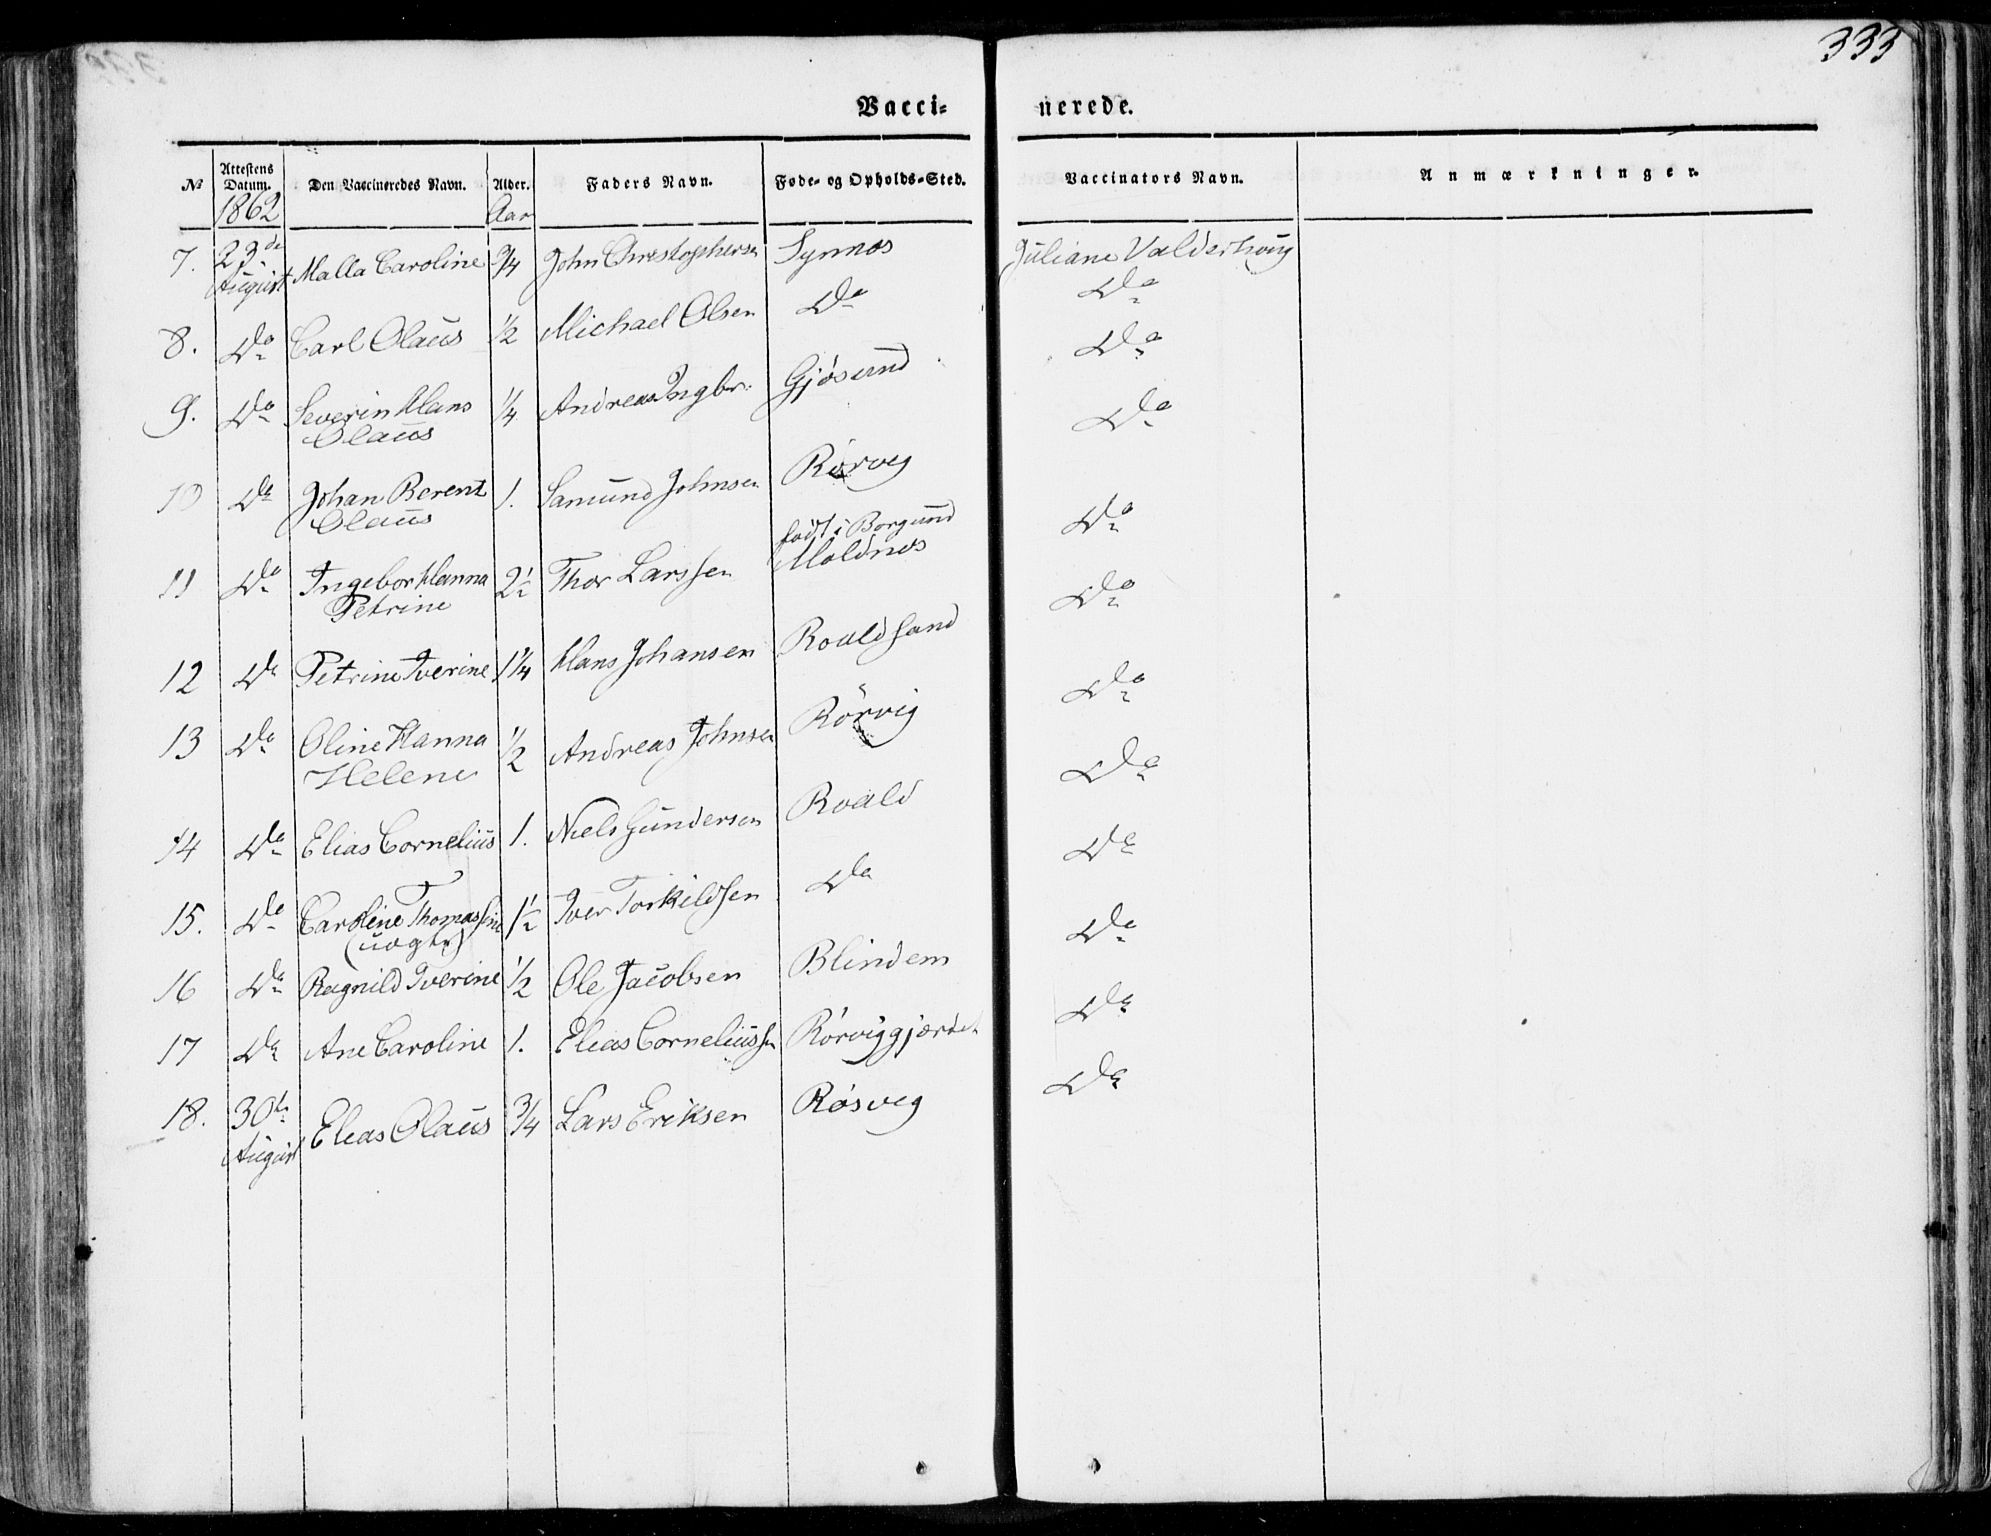 333
Vacci- nerede.
№ Attestens Datum. Den Vaccineredes Navn. Alder. Faders Navn. Føde- og Opholds-Sted. Vaccinators Navn. Anmærkninger.
1862 Aar
7. 23de August Malla Caroline 3/4 John Christophersen Synnæs Juliane Valderhoug
8. Do Carl Olaus 1/2 Michael Olsen Do Do
9. Do Severin Hans 1/4 Andreas Ingbr. Gjøsund Do
Olaus
10 Do Johan Berent 1. Samund Johnsen Rørvig Do
Olaus
født i Borgund
11 Do Ingebor Hanna 2½ Thor Larssen Moldnæs Do
Petrine
12 Do Petrine Iverine 1¼ Hans Johansen Roaldsand Do
13 Do Oline Hanna 1/2 Andreas Johnsen Rørvig Do
Helene
14 Do Elias Cornelius 1. Niels Gundersen Roald Do
15. Do Caroline Thomassine 1½ Iver Torkildsen Do Do
(uægte)
16 Do Ragnild Iverine 1/2 Ole Jacobsen Blindem Do
17 Do Ane Caroline 1. Elias Corneliussen Rørviggjærdet Do
18. 30te August Elias Olaus 3/4 Lars Eriksen Røsvig Do